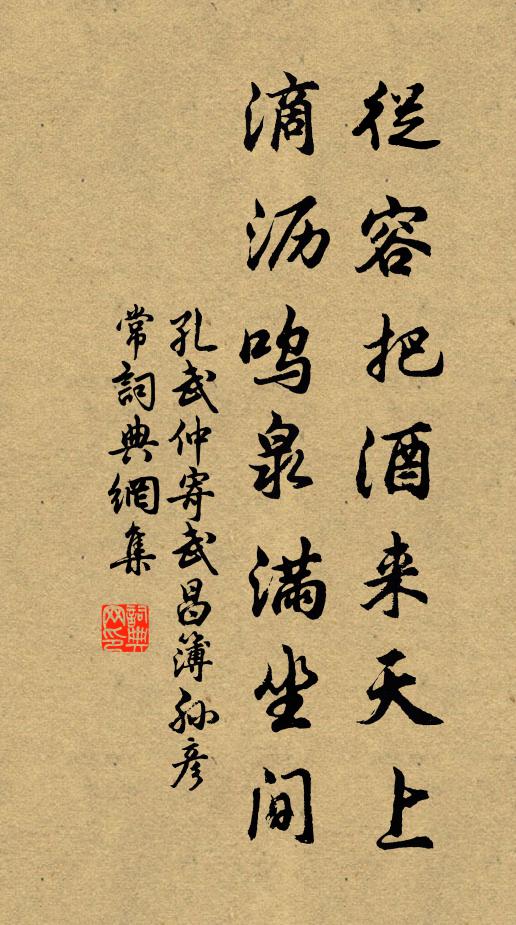 從容把酒来天上
滴沥鸣泉满坐間
孔武仲寄武昌簿孙彦
常詞典網集
詞典网印